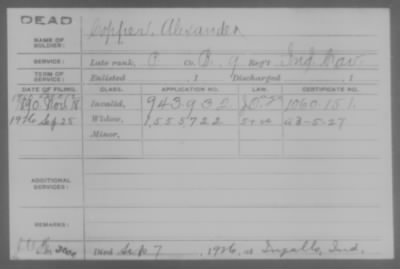 DEAD
NAME OF SOLDIER: Alexander
SERVICE: Late rank, C co. B, 9 Reg't Ind. Cav.
TERM OF SERVICE: Enlisted , 1 Discharged , 1
DATE OF FILING. CLASS. APPLICATION NO. LAW. CERTIFICATE NO.
1890 Invalid, 943.930 1060.151
1926 Sep 25 Widow, 1,555,722 a3-5-27
Minor,
ADDITIONAL SERVICES:
REMARKS:
Died Sep 7, 1926, at Ingalls, Ind.